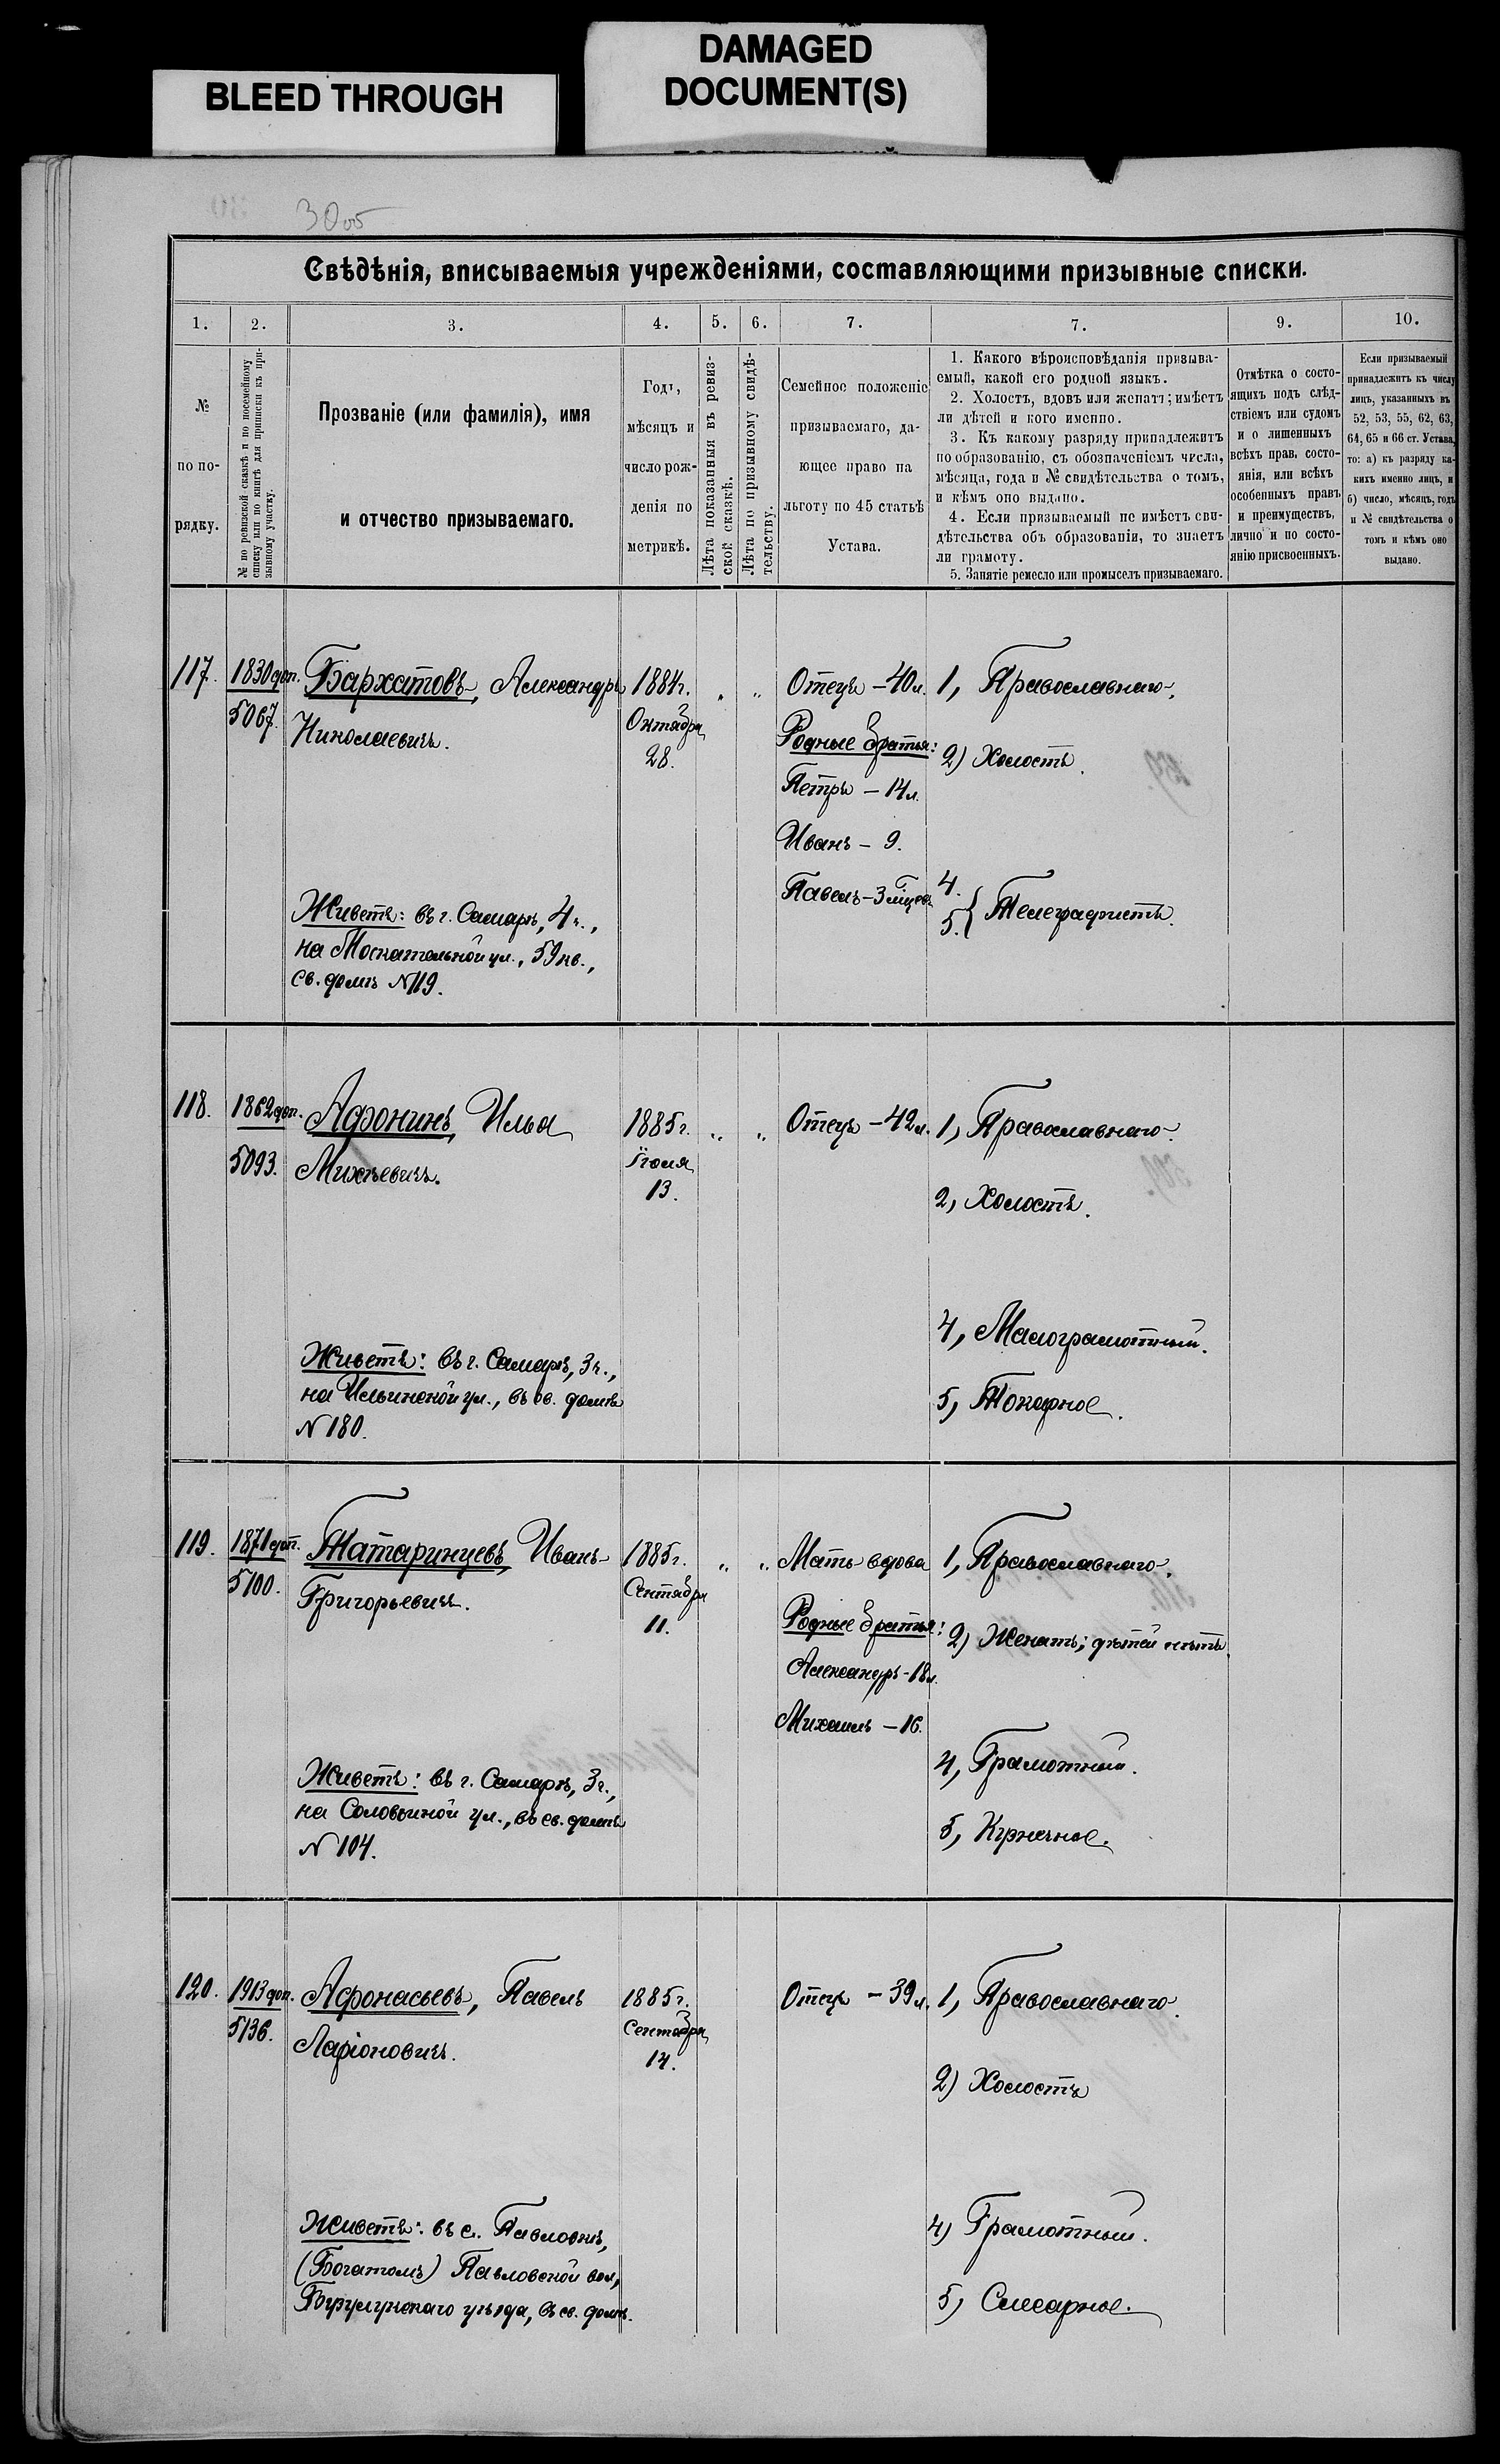 DAMAGED
DOCUMENT(S)
BLEED THROUGH
30об
Свѣдѣнія, вписываемыя учрежденіями, составляющими призывные списки.
1.
2.
3.
4.
5.
6.
7.
7.
9.
10.
№
по по-
рядку.
№ по ревизской сказкѣ и по посемейному
списку или по книгѣ для приписки къ при-
зывному участку.
Прозваніе (или фамилія), имя
и отчество призываемаго.
Годъ,
мѣсяцъ и
число рож-
денія по
метрикѣ.
Лѣта показанныя въ ревиз-
ской сказкѣ.
Лѣта по призывному свидѣ-
тельству.
Семейное положеніе
призываемаго, да-
ющее право на
льготу по 45 статьѣ
Устава.
1. Какого вѣроисповѣданія призыва-
емый, какой его родной языкъ.
2. Холостъ, вдовъ или женатъ; имѣетъ
ли дѣтей и кого именно.
3. Къ какому разряду принадлежитъ
по образованію, съ обозначеніемъ числа,
мѣсяца, года и № свидѣтельства о томъ,
и кѣмъ оно выдано.
4. Если призываемый не имѣетъ сви-
дѣтельства объ образованіи, то знаетъ
ли грамоту.
5. Занятіе ремесло или промыселъ призываемаго.
Отмѣтка о состо-
ящихъ подъ слѣд-
ствіемъ или судомъ
и о лишенныхъ
всѣхъ прав, состо-
янія, или всѣхъ
особенныхъ правъ
и преимуществъ,
лично и по состо-
янію присвоенныхъ.
Если призываемый
принадлежитъ къ числу
лицъ, указанныхъ въ
52, 53, 55, 62, 63,
64, 65 и 66 ст. Устава,
то: а) къ разряду ка-
кихъ именно лицъ, и
б) число, мѣсяцъ, годъ
и № свидѣтельства о
томъ и кѣмъ оно
выдано.
117.
1830 доп.
5067.
Бархатовъ, Александръ
Николаевичъ.
Живетъ: въ г. Самарѣ, 4 ч.,
на Москательной ул., 59 кв.,
св. домъ № 119.
1884 г.
Октября
28.
„ „
Отецъ – 40 л.
Родные братья:
Петръ – 14 л.
Иванъ – 9.
Павелъ – 3 мѣсяц.
1, Православнаго.
2) Холостъ.
4.
5. { Телеграфистъ.
118.
1862 доп.
5093.
Афонинъ, Илья
Михѣевичъ.
Живетъ: въ г. Самарѣ, 3 ч.,
на Ильинской ул., въ св. домѣ
№ 180.
1885 г.
Іюля
13.
„ „
Отецъ – 42 л.
1, Православнаго.
2, Холостъ.
4, Малограмотный.
5, Токарное.
119.
1871 доп.
5100.
Татаринцевъ, Иванъ
Григорьевичъ.
Живетъ: въ г. Самарѣ, 3 ч.,
на Соловьиной ул., въ св. домѣ
№ 104.
1885 г.
Сентября
11.
„ „
Мать вдова
Родные братья:
Александръ – 18 л.
Михаилъ – 16.
1, Православнаго.
2) Женатъ; дѣтей нѣтъ.
4, Грамотный.
5, Кузнечное.
120.
1913 доп.
5136.
Афонасьевъ, Павелъ
Ларіоновичъ.
Живетъ: въ с. Павловкѣ,
(Богатомъ) Павловской вол.,
Бузулукскаго уѣзда, въ св. домѣ.
1885 г.
Сентября
14.
Отецъ – 39 л.
1, Православнаго.
2) Холостъ
4) Грамотный.
5, Слесарное.